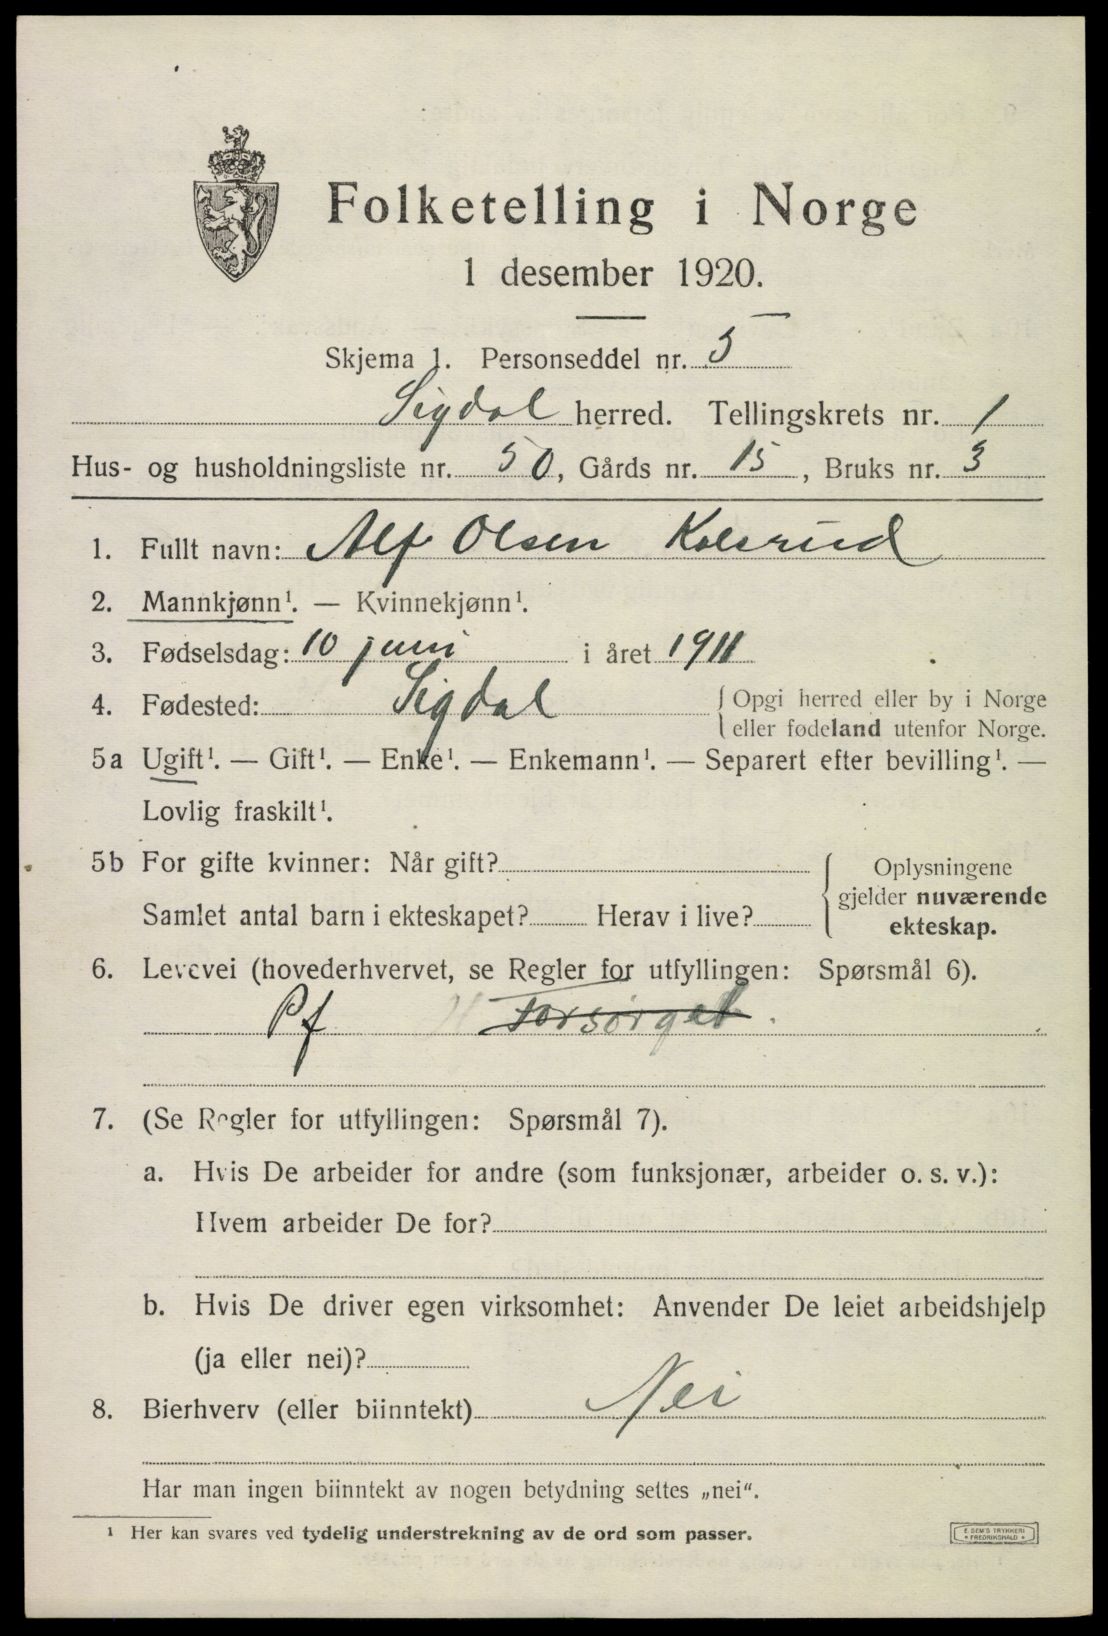 Folketelling i Norge
1 desember 1920.
Skjema 1. Personseddel nr. 5
Sigdal herred. Tellingskrets nr. 1
Hus- og husholdningsliste nr. 50, Gårds nr. 15, Bruks nr. 3
1. Fullt navn: Alf Olsen Kolsrud
2. Mannkjønn¹. — Kvinnekjønn¹.
3. Fødselsdag: 10 juni i året 1911
4. Fødested: Sigdal { Opgi herred eller by i Norge
eller fødeland utenfor Norge.
5a Ugift¹. — Gift¹. — Enke¹. — Enkemann¹. — Separert efter bevilling¹. —
Lovlig fraskilt¹.
5b For gifte kvinner: Når gift?
Samlet antal barn i ekteskapet? Herav i live?
Oplysningene
gjelder nuværende
ekteskap.
6. Levevei (hovederhvervet, se Regler for utfyllingen: Spørsmål 6).
Pf Forsørget.
7. (Se Regler for utfyllingen: Spørsmål 7).
a. Hvis De arbeider for andre (som funksjonær, arbeider o. s. v.):
Hvem arbeider De for?
b. Hvis De driver egen virksomhet: Anvender De leiet arbeidshjelp
(ja eller nei)?
8. Bierhverv (eller biinntekt) Nei
Har man ingen biinntekt av nogen betydning settes „nei“.
¹ Her kan svares ved tydelig understrekning av de ord som passer.
E. SEM'S TRYKKERI
FREDRIKSHALD